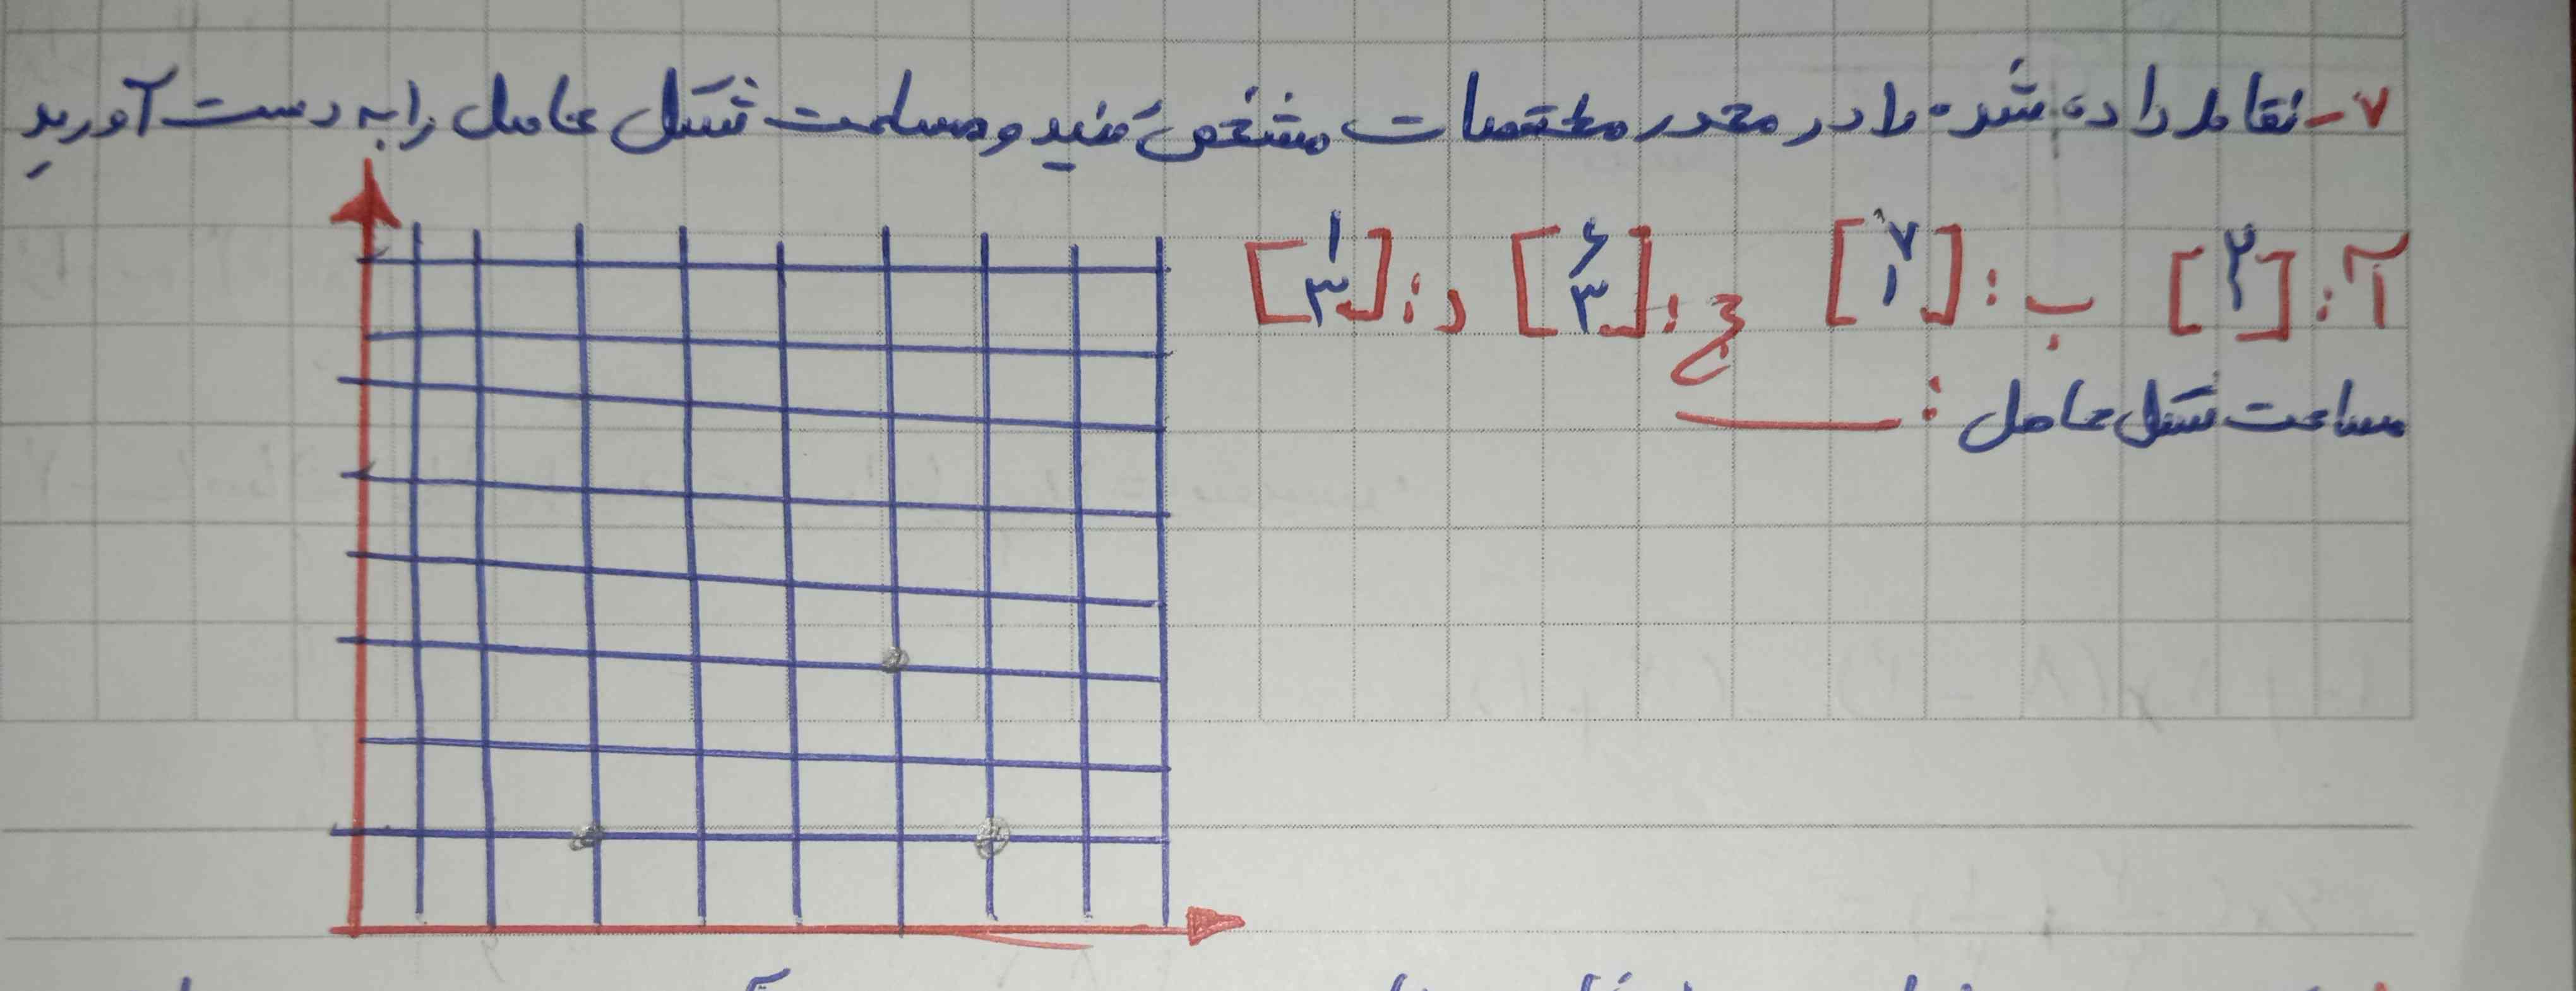 ۷- نقاط داده شده را در محور مختصات مشخص کنید و مساحت شکل حاصل را به دست آورید
آ: [۳ ۱] ب: [۷ ۱] ج: [۶ ۳] د: [۱ ۳]
مساحت شکل حاصل :